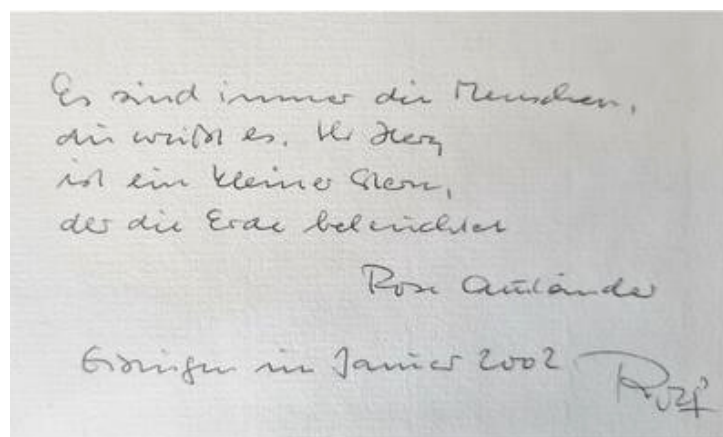 Es sind immer die Menschen,
du weißt es. Ihr Herz
ist ein kleiner Stern,
der die Erde beleuchtet
Rose Ausländer
im Januar 2002